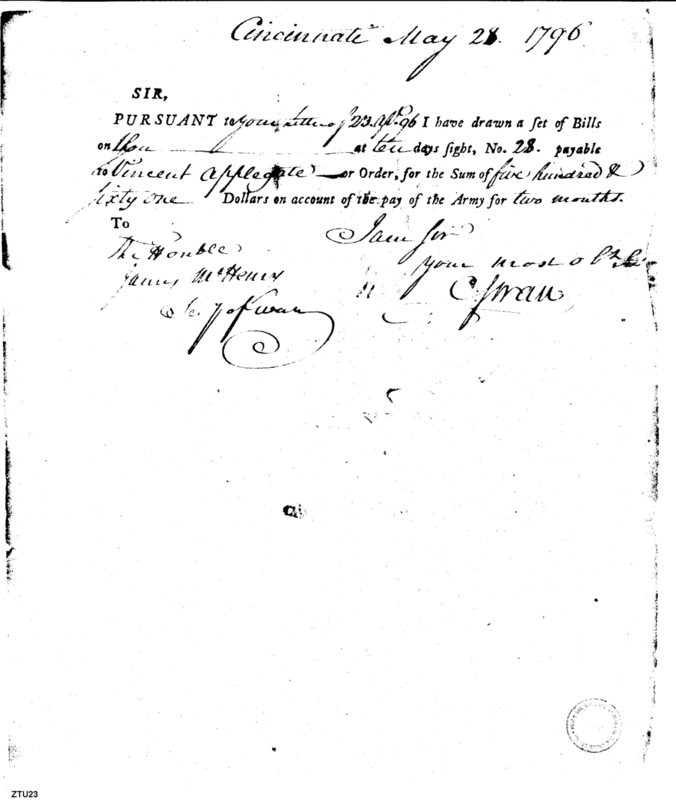 Cincinnati May 28. 1796
SIR,
PURSUANT to your letter of 23. Apl. 96 I have drawn a ſet of Bills
on thou at ten days ſight, No. 28. payable
to Vincent Applegate or Order, for the Sum of five hundred &
sixty one Dollars on account of the pay of the Army for two months.
To
The Honble I am Sir
James McHenry your most obt
Secy of War C Swan
ZTU23